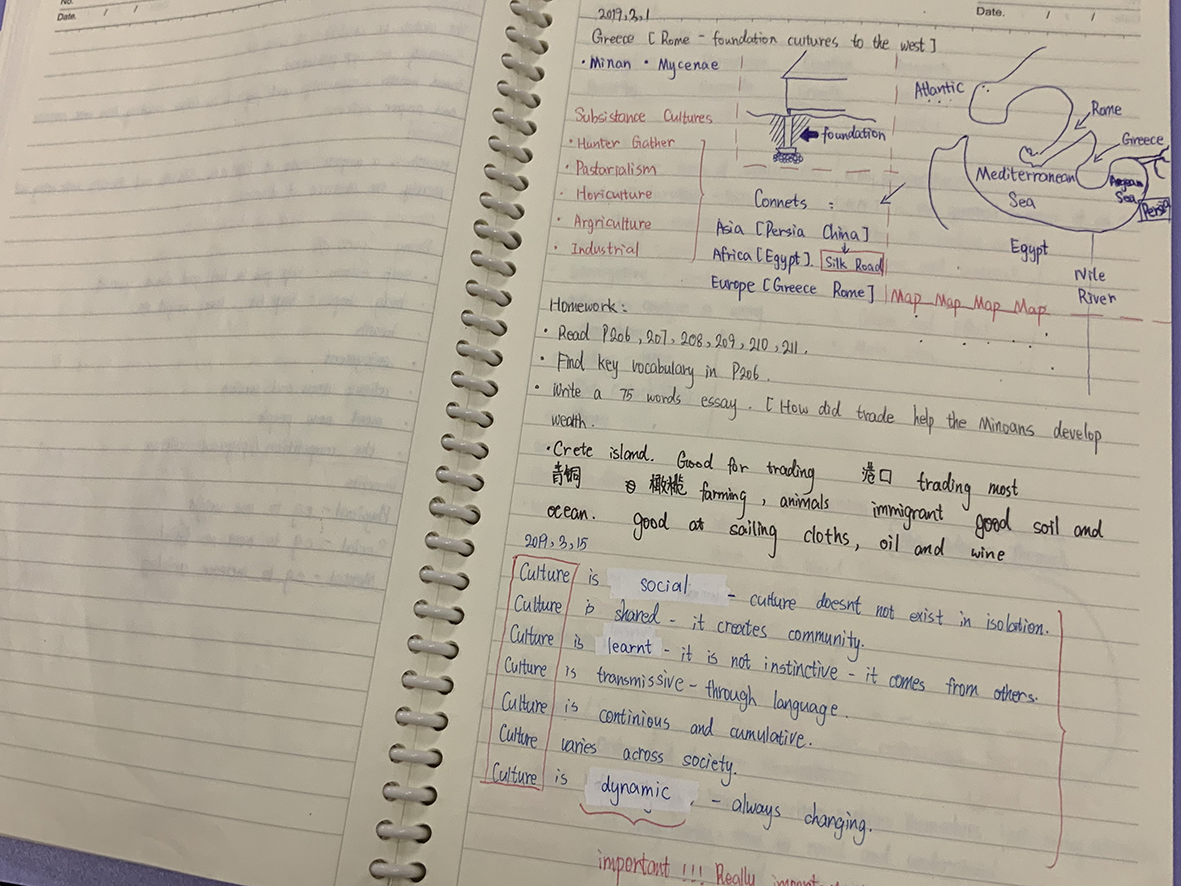 No.
Date. / /
Date. / /
2019,3,1
Greece [Rome - foundation cultures to the west]
· Minan · Mycenae
Subsistance Cultures
· Hunter Gather
· Pastorialism
· Horiculture
· Argriculture
· Industrial
foundation
Connets :
Asia [Persia China]
Africa [Egypt]. Silk Road
Europe [Greece Rome]
Atlantic
Rome
Greece
Mediterranean
Sea
Aegean
Sea
Persia
Egypt
Nile
River
Map Map Map Map
Homework:
· Read P206, 207, 208, 209, 210, 211.
· Find key vocabulary in P206.
· Write a 75 words essay. [How did trade help the Minoans develop
wealth.
· Crete island. Good for trading 港口 trading most
青铜 橄榄 farming, animals immigrant good soil and
ocean. good at sailing cloths, oil and wine
2019,3,15
Culture is social - culture doesnt not exist in isolation.
Culture is shared - it creates community.
Culture is learnt - it is not instinctive - it comes from others.
Culture is transmissive - through language.
Culture is continious and cumulative.
Culture varies across society.
Culture is dynamic. - always changing.
important !!! Really